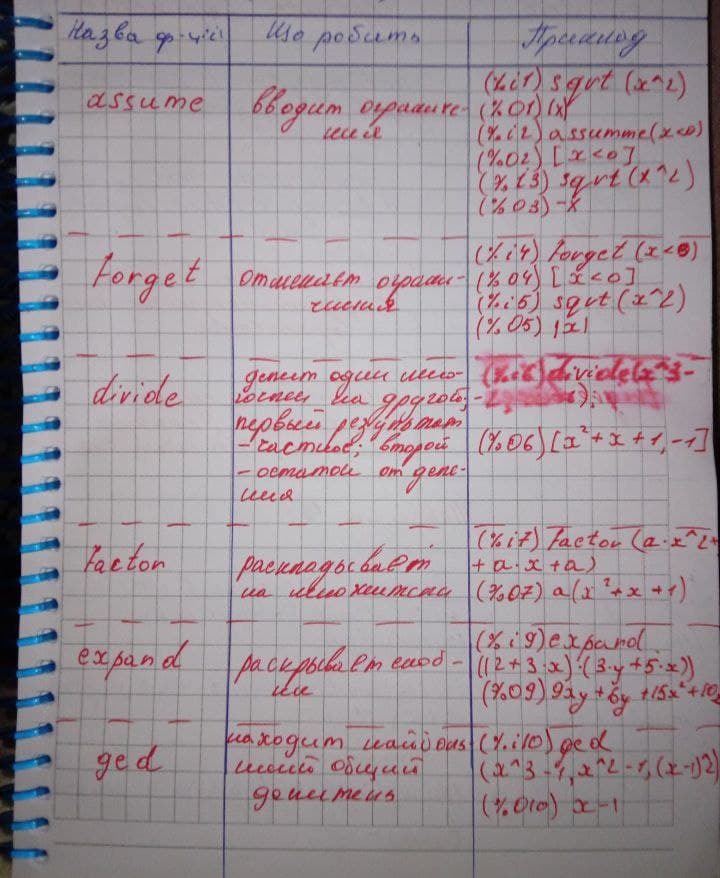 Назва ф-ції
Що робить
Приклад
assume
вводит ограниче-
ния
(%i1) sqrt (x^2)
(%01) |x|
(%i2) assumme(x<0)
(%02) [x<0]
(%i3) sqrt (x^2)
(%03) -x
forget
отменяет ограни-
чения
(%i4) forget (x<0)
(%04) [x<0]
(%i5) sqrt (x^2)
(%05) |x|
divide
делит один мно-
гочлен на другой;
первый результат
- частное; второй
- остаток от деле-
ния
(%i6) divide(x^3-
(%06) [x²+x+1,-1]
factor
раскладывает
на множители
(%i7) factor (a·x^2+
+a·x+a)
(%07) a(x²+x+1)
expand
раскрывает скоб-
ки
(%i9) expand
((2+3·x)·(3·y+5·x))
(%09) 9xy+6y+15x²+10x
gcd
находит наиболь
ший общий
делитель
(%i10) gcd
(x^3-1,x^2-1,(x-1)^2)
(%010) x-1